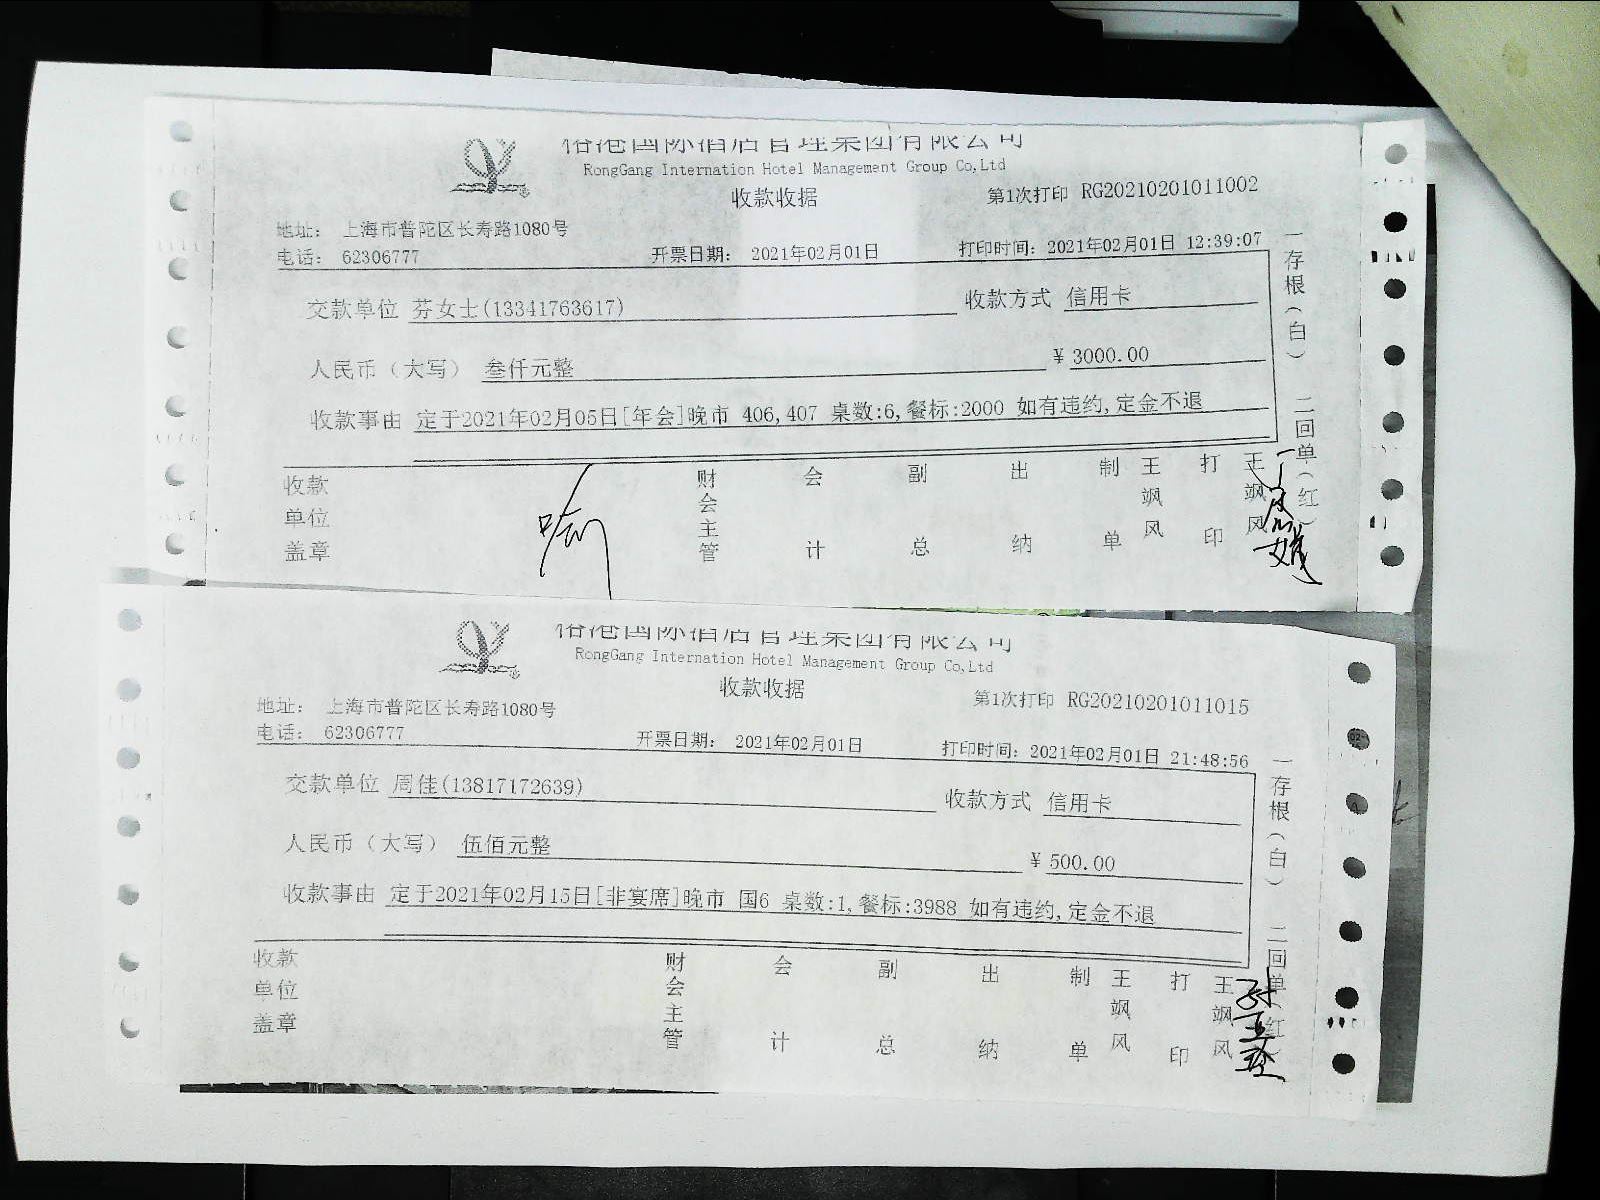 港国际酒店管理集团有限公司
RongGang Internation Hotel Management Group Co,Ltd
收款收据
第1次打印 RG20210201011002
地址： 上海市普陀区长寿路1080号
电话： 62306777
开票日期： 2021年02月01日
打印时间：2021年02月01日 12:39:07
交款单位 芬女士(13341763617)
收款方式 信用卡
人民币（大写） 叁仟元整
¥ 3000.00
收款事由 定于2021年02月05日[年会]晚市 406,407 桌数:6,餐标:2000 如有违约,定金不退
一存根（白） 二回单（红）
收款单位盖章
财会主管
会计
副总
出纳
制单
王飒风
打印
王飒风
港国际酒店管理集团有限公司
RongGang Internation Hotel Management Group Co,Ltd
收款收据
第1次打印 RG20210201011015
地址： 上海市普陀区长寿路1080号
电话： 62306777
开票日期： 2021年02月01日
打印时间：2021年02月01日 21:48:56
交款单位 周佳(13817172639)
收款方式 信用卡
人民币（大写） 伍佰元整
¥ 500.00
收款事由 定于2021年02月15日[非宴席]晚市 国6 桌数:1,餐标:3988 如有违约,定金不退
一存根（白） 二回单（红）
收款单位盖章
财会主管
会计
副总
出纳
制单
王飒风
打印
王飒风